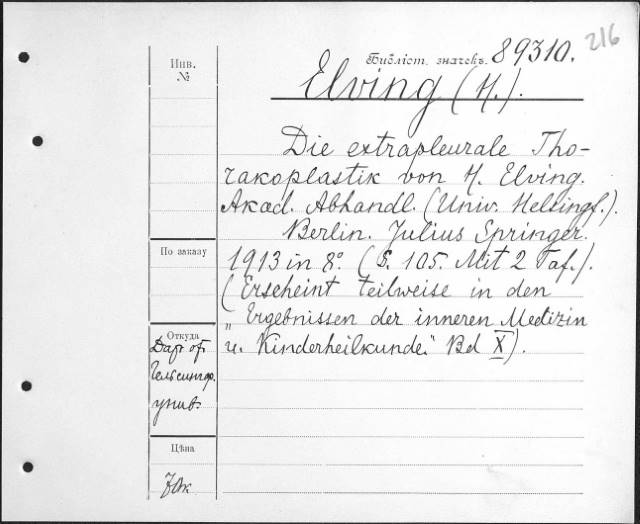 216
Инв.
№
Библіот. значекъ. 89310.
Elving (H.).
Die extrapleurale Tho-
rakoplastik von H. Elving.
Akad. Abhandl. (Univ. Helsingf.).
Berlin. Julius Springer.
1913 in 8°. (S. 105. Mit 2 Taf.).
(Erscheint teilweise in den
„Ergebnissen der inneren Medizin
u. Kinderheilkunde." Bd X).
По заказу
Откуда
Даръ от
Гельсингф.
унив.
Цѣна